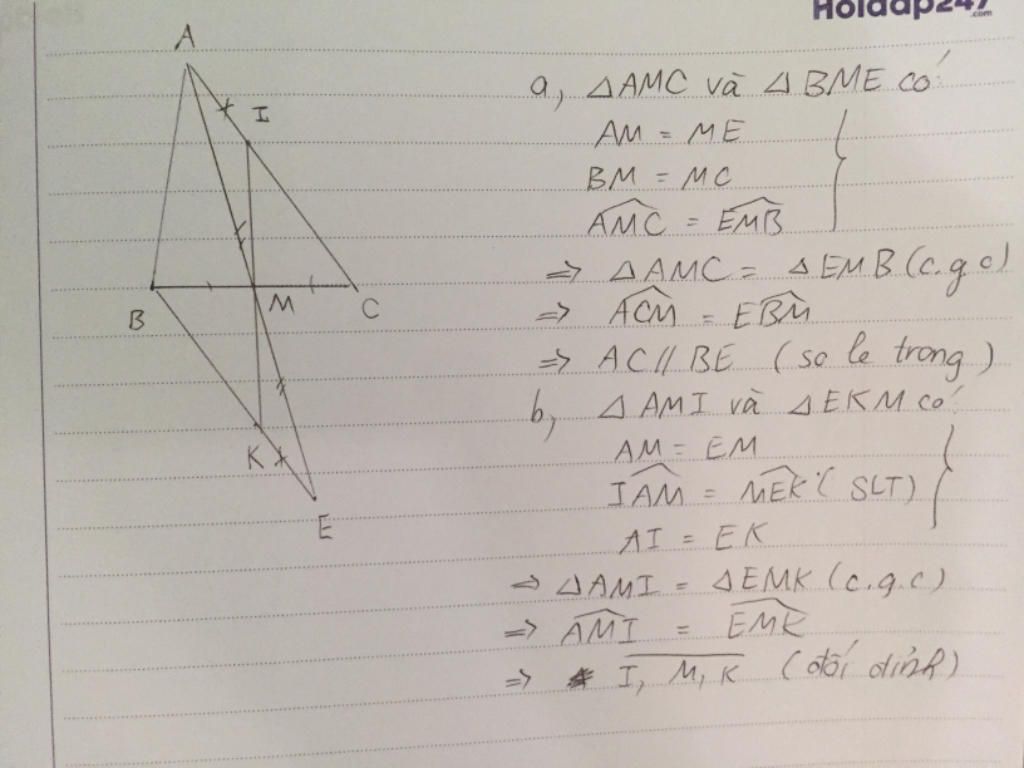 Hoidap247
.com
A
I
B
M
C
K
E
a, △AMC và △BME có:
AM = ME
BM = MC
\widehat{AMC} = \widehat{EMB}
⇒ △AMC = △EMB (c.g.c)
⇒ \widehat{ACM} = \widehat{EBM}
⇒ AC // BE (so le trong)
b, △AMI và △EKM có:
AM = EM
\widehat{IAM} = \widehat{MEK} (SLT)
AI = EK
⇒ △AMI = △EMK (c.g.c)
⇒ \widehat{AMI} = \widehat{EMK}
⇒ \overline{I, M, K} (đối đỉnh)